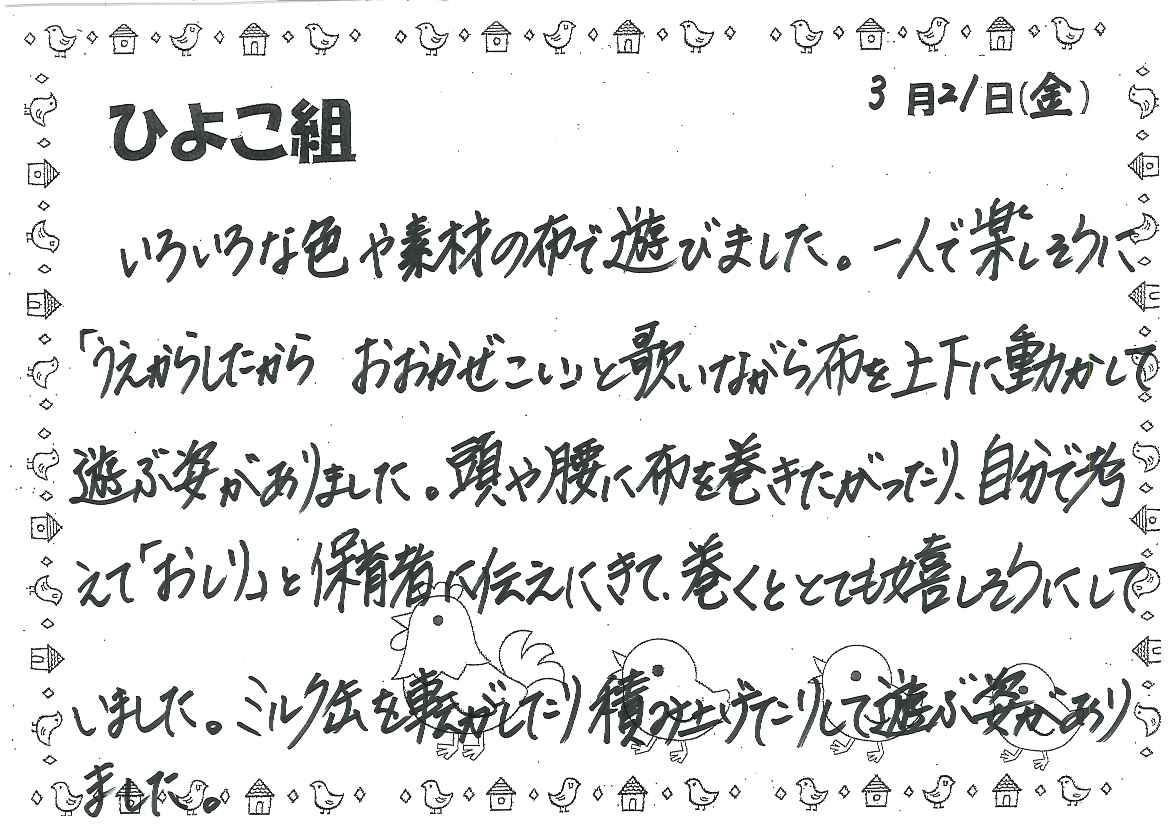 3月21日(金)
ひよこ組
いろいろな色や素材の布で遊びました。一人で楽しそうに
「うえからしたから おおかぜこい」と歌いながら布を上下に動かして
遊ぶ姿がありました。頭や腰に布を巻きたがったり、自分で考
えて「おしり」と保育者に伝えにきて、巻くととても嬉しそうにして
いました。ミルク缶を転がしたり積み上げたりして遊ぶ姿があり
ました。